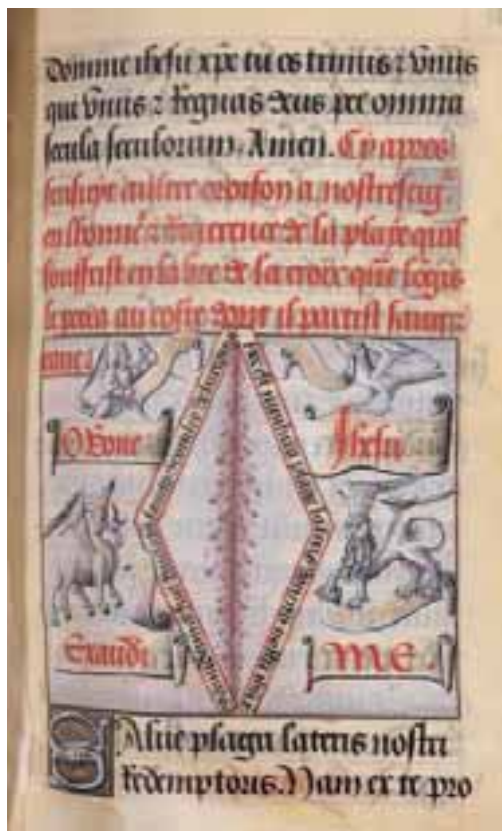 Domine ihesu xpe tu es trinus ⁊ vnus
qui vnus ⁊ regnas deus per omnia
secula seculorum. Amen. Cy apres
sensuyt aultre oroison a nostre seig.
en lhonneur ⁊ reuerence de la playe quil
souffrist en larbre de la croix que longis
le persa au coste dont il partist sanc ⁊
eaue
O bone
Ihesu
Exaudi
ME.
Salue plaga lateris nostri
Redemptoris. Nam ex te pro